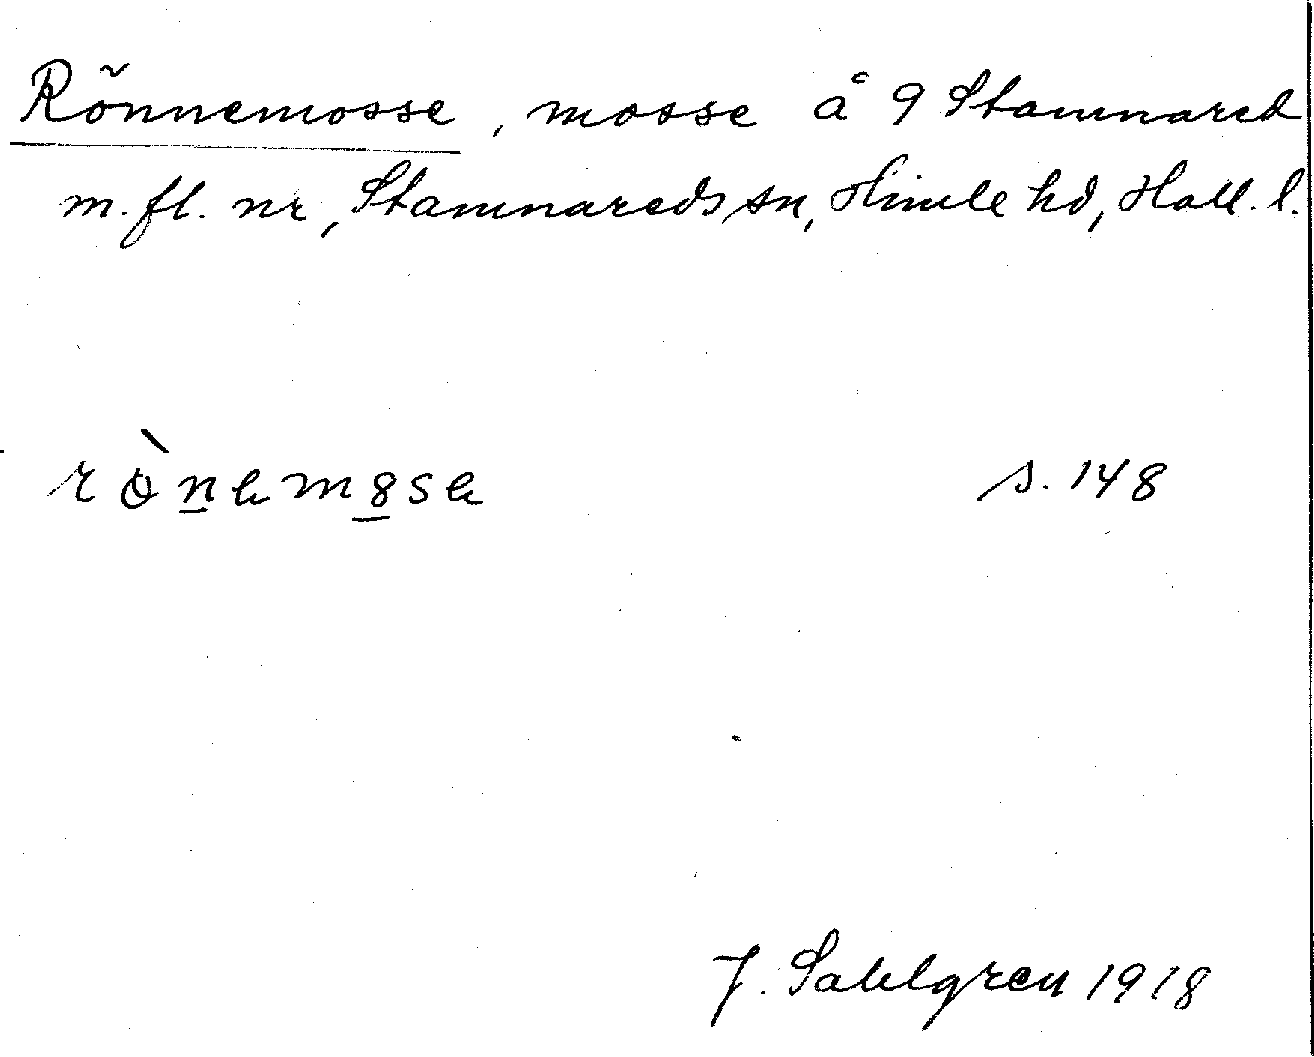 Rönnemosse, mosse å 9 Stamnared
m.fl. nr, Stamnareds sn, Himle hd, Hall. l.
s. 148
J. Sahlgren 1918